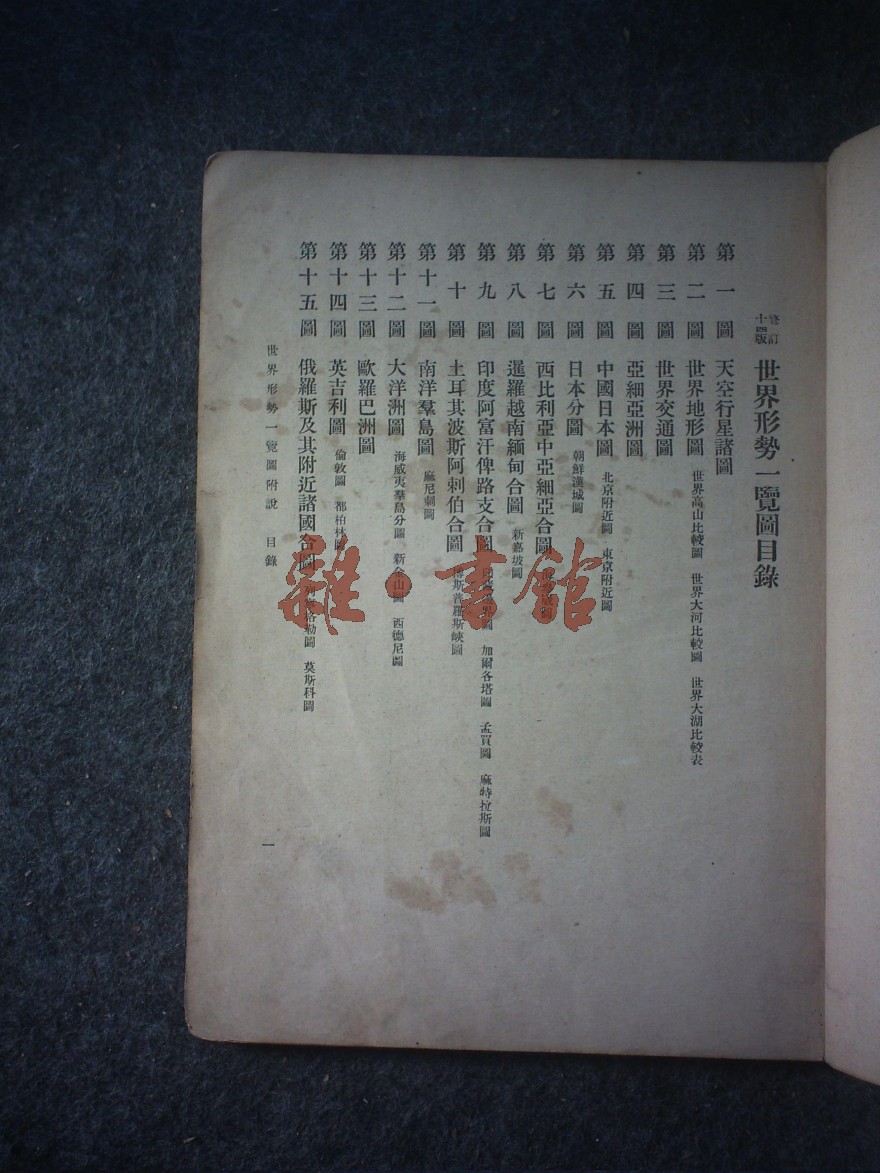 修訂十四版 世界形勢一覽圖目錄
第一圖 天空行星諸圖
第二圖 世界地形圖 世界高山比較圖 世界大河比較圖 世界大湖比較表
第三圖 世界交通圖
第四圖 亞細亞洲圖
第五圖 中國日本圖 北京附近圖 東京附近圖
第六圖 日本分圖 朝鮮漢城圖
第七圖 西比利亞中亞細亞合圖
第八圖 暹羅越南緬甸合圖 新嘉坡圖
第九圖 印度阿富汗俾路支合圖 加爾各塔圖 孟買圖 麻特拉斯圖
第十圖 土耳其波斯阿剌伯合圖 斯普羅斯峽圖
第十一圖 南洋羣島圖 麻尼剌圖
第十二圖 大洋洲圖 海威夷羣島分圖 新金山圖 西德尼圖
第十三圖 歐羅巴洲圖
第十四圖 英吉利圖 倫敦圖 都柏林圖
第十五圖 俄羅斯及其附近諸國合圖 格勒圖 莫斯科圖
世界形勢一覽圖附說 目錄
一
雜·書館